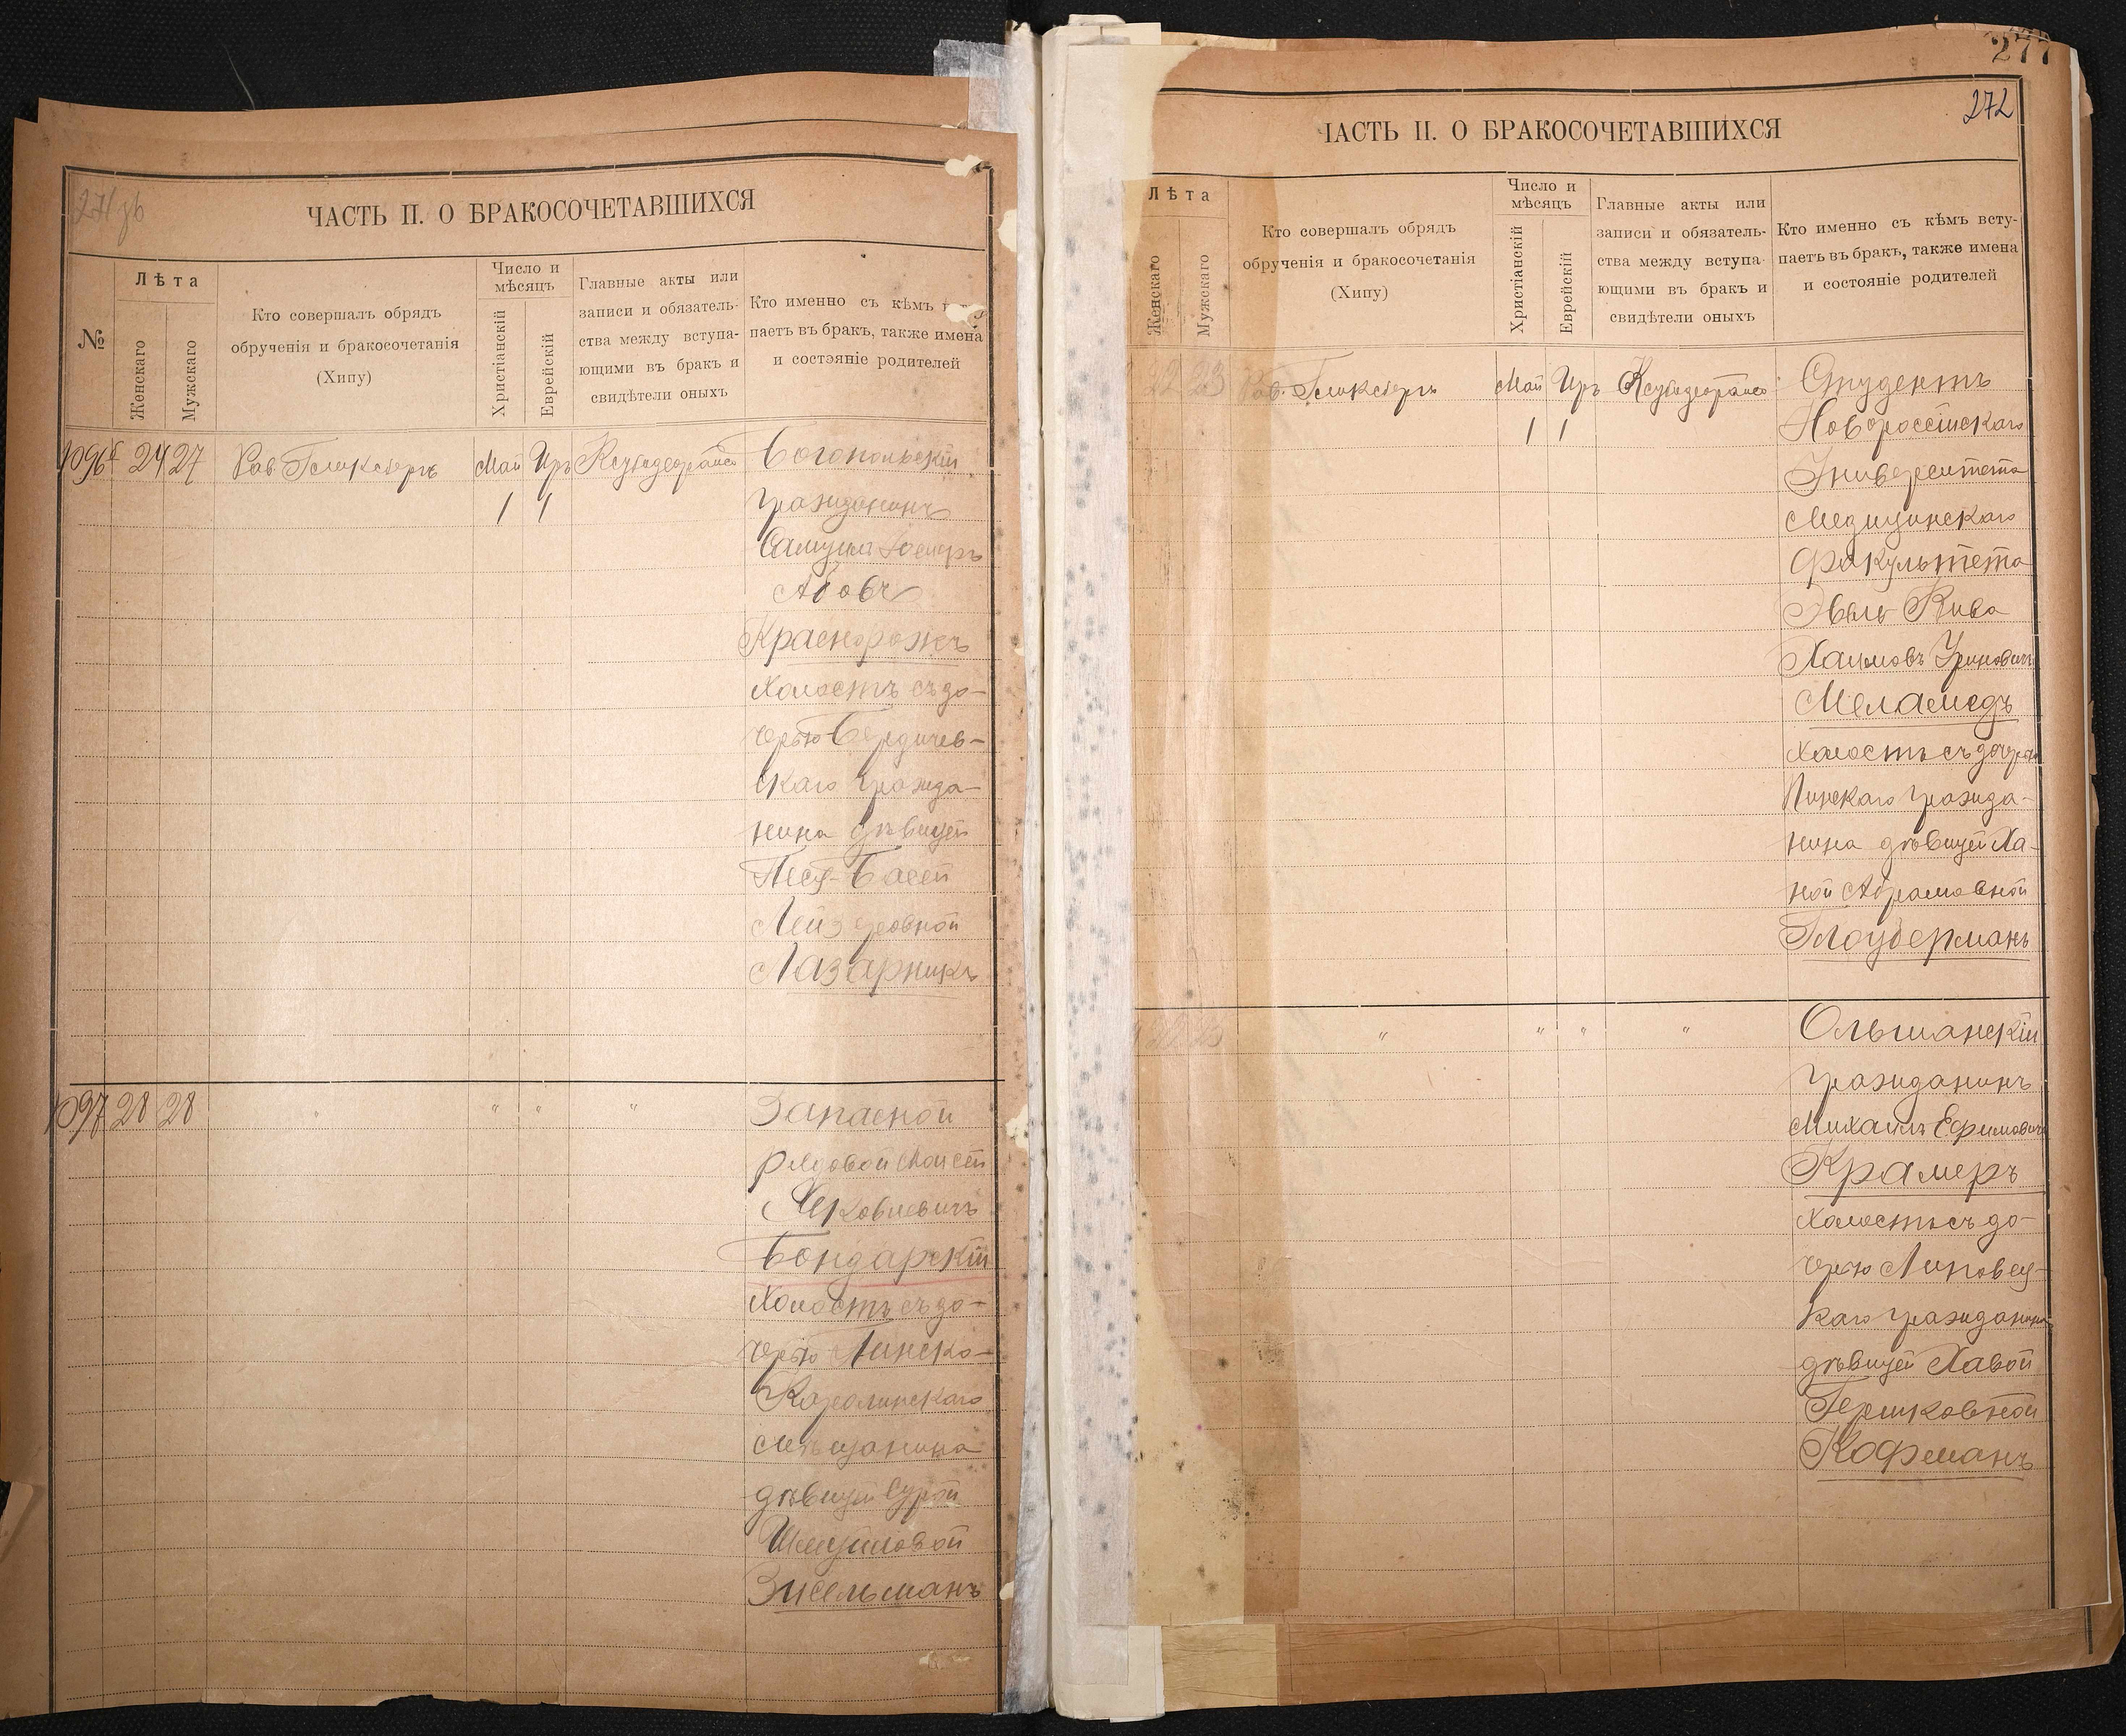 ЧАСТЬ II. О БРАКОСОЧЕТАВШИХСЯ
№
Лѣта
Женскаго
Мужскаго
Кто совершалъ обрядъ
обрученія и бракосочетанія
(Хипу)
Число и
мѣсяцъ
Христіанскій
Еврейскій
Главные акты или
записи и обязатель-
ства между вступа-
ющими въ бракъ и
свидѣтели оныхъ
Кто именно съ кѣмъ
паетъ въ бракъ, также имена
и состояніе родителей
24 27 Рав. Гликсбергъ Май Иръ
1 1
Богопольскій
гражданинъ
Самуилъ
Абовъ
Краснорожъ
холостъ съ до-
черью Бердичев-
скаго гражда-
нина дѣвицей
Песя-Басей
Лейзеровной
Лазарникъ
28 28 " " " "
Запасной
рядовой Моисей
Бондарскій
холостъ съ до-
черью Пинско-
Каролинскаго
мѣщанина
дѣвицей Сурой
Шмуиловой
Зисельманъ
277
272
ЧАСТЬ II. О БРАКОСОЧЕТАВШИХСЯ
Лѣта
Женскаго
Мужскаго
Кто совершалъ обрядъ
обрученія и бракосочетанія
(Хипу)
Число и
мѣсяцъ
Христіанскій
Еврейскій
Главные акты или
записи и обязатель-
ства между вступа-
ющими въ бракъ и
свидѣтели оныхъ
Кто именно съ кѣмъ всту-
паетъ въ бракъ, также имена
и состояніе родителей
22 23 Рав. Гликсбергъ Май Иръ
1 1
Студентъ
Новороссійскаго
Университета
Медицинскаго
факультета
Кива
Хаимовъ
Меламедъ
холостъ съ дочерью
Пинскаго гражда-
нина дѣвицей Ха-
ной Абрамовной
Глоуберманъ
" " " "
Ольшанскій
гражданинъ
Михаилъ Ефимовичъ
Крамеръ
холостъ съ до-
черью Липовец-
каго гражданина
дѣвицей Хавой
Гершковной
Кофманъ